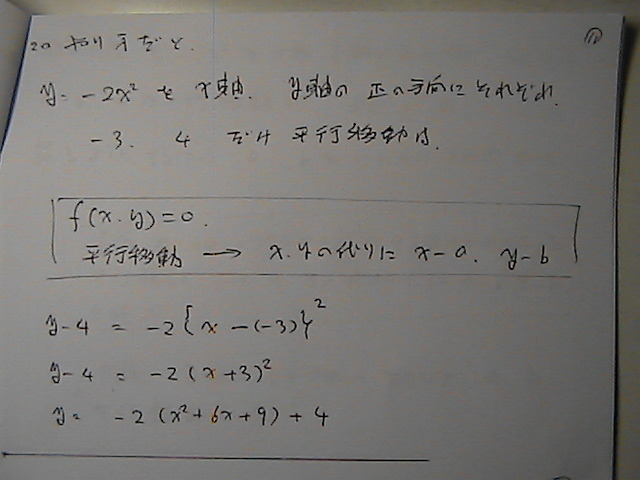 ⑪
このやり方だと、
y = -2x² を x軸、y軸の正の方向にそれぞれ
-3、4 だけ 平行移動は、
f(x, y) = 0.
平行移動 → x, yの代りに x-a, y-b
y-4 = -2{x-(-3)}²
y-4 = -2(x+3)²
y = -2(x²+6x+9)+4